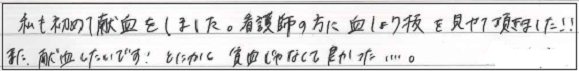 私も初めて献血をしました。看護師の方に血しょう板を見せて頂きました!!
また、献血したいです! とにかく貧血じゃなくて良かった....。